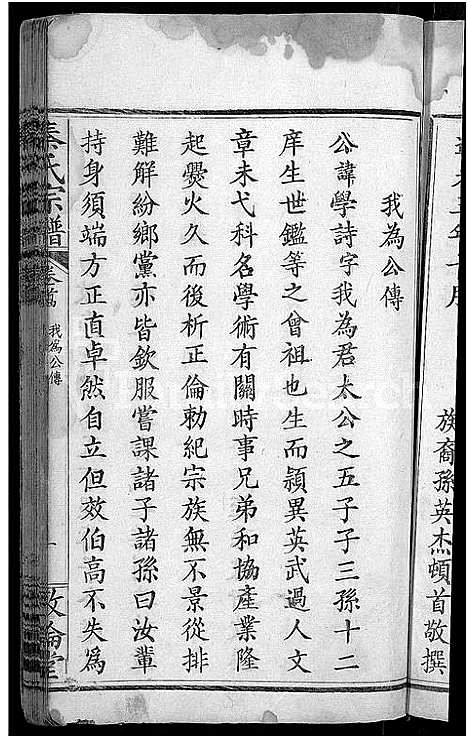 族裔孫英杰頓首敬撰
我為公傳
公諱學詩字我為君太公之五子子三孫十二
庠生世鑑等之曾祖也生而頴異英武過人文
章未弋科名學術有關時事兄弟和協產業隆
起爨火久而後析正倫勅紀宗族無不景從排
難解紛鄉黨亦皆欽服嘗課諸子諸孫曰汝輩
持身須端方正直卓然自立但效伯高不失為
秦氏宗譜
卷首
我為公傳
一
敦倫堂